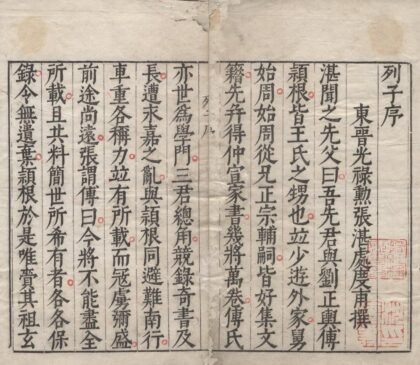 列子序
東晉光祿勲張湛處度甫撰
湛聞之先父曰吾先君與劉正輿傅
穎根皆王氏之甥也竝少遊外家舅
始周始周從兄正宗輔嗣皆好集文
籍先并得仲宣家書幾將萬卷傅氏
列子序
亦世為學門三君總角競錄奇書及
長遭永嘉之亂與穎根同避難南行
車重各稱力竝有所載而冦虜彌盛
前途尚遠張謂傅曰今將不能盡全
所載且共料簡世所希有者各各保
錄令無遺棄穎根於是唯賫其祖玄